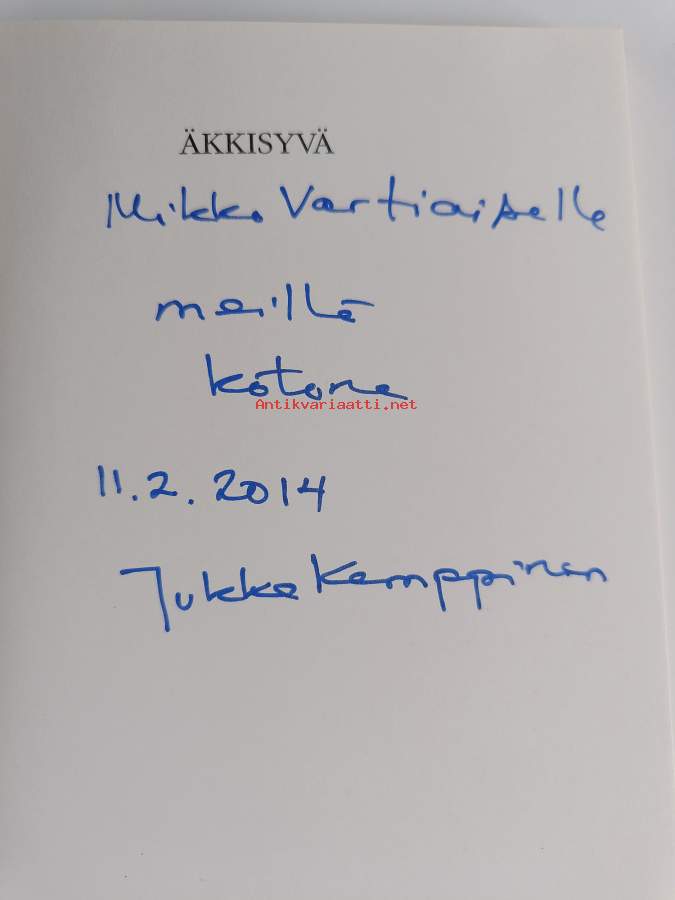 ÄKKISYVÄ
Mikko Vartiaiselle
meillä
kotona
Antikvariaatti.net
11.2.2014
Jukka Kemppinen